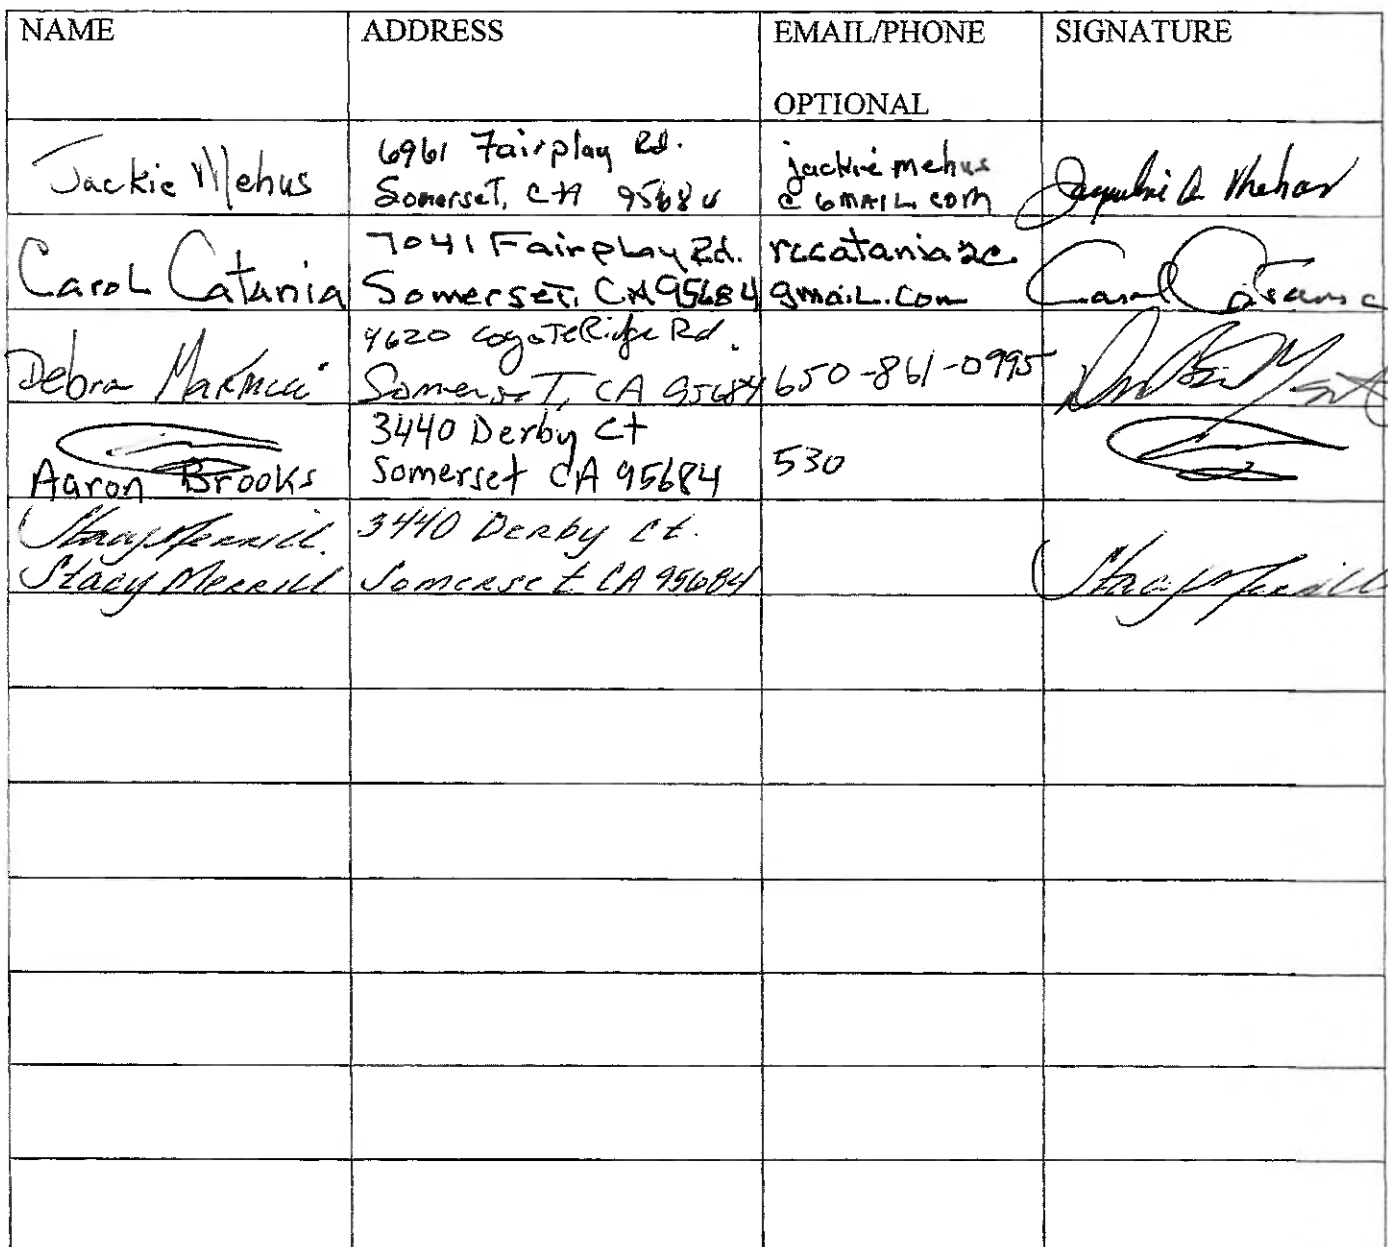 NAME ADDRESS EMAIL/PHONE SIGNATURE
OPTIONAL
Jackie Mehus
6961 Fairplay Rd.
Somerset, CA 95684
jackie mehus
@ GMAIL COM
Carol Catania
7041 Fairplay Rd.
Somerset, CA 95684
rccatania2@
gmail.com
Carol Catania
Debra
4620 Coyote Ridge Rd.
Somerset, CA 95684
650-861-0995
Aaron Brooks
3440 Derby Ct
Somerset CA 95684
530
Stacy Merrill
Stacy Merrill
3440 Derby Ct.
Somerset CA 95684
Stacy Merrill